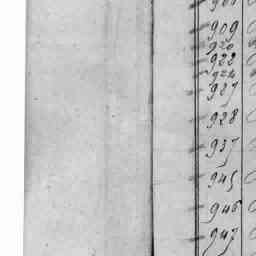 909
920
922
924
927
928
937
945
946
947